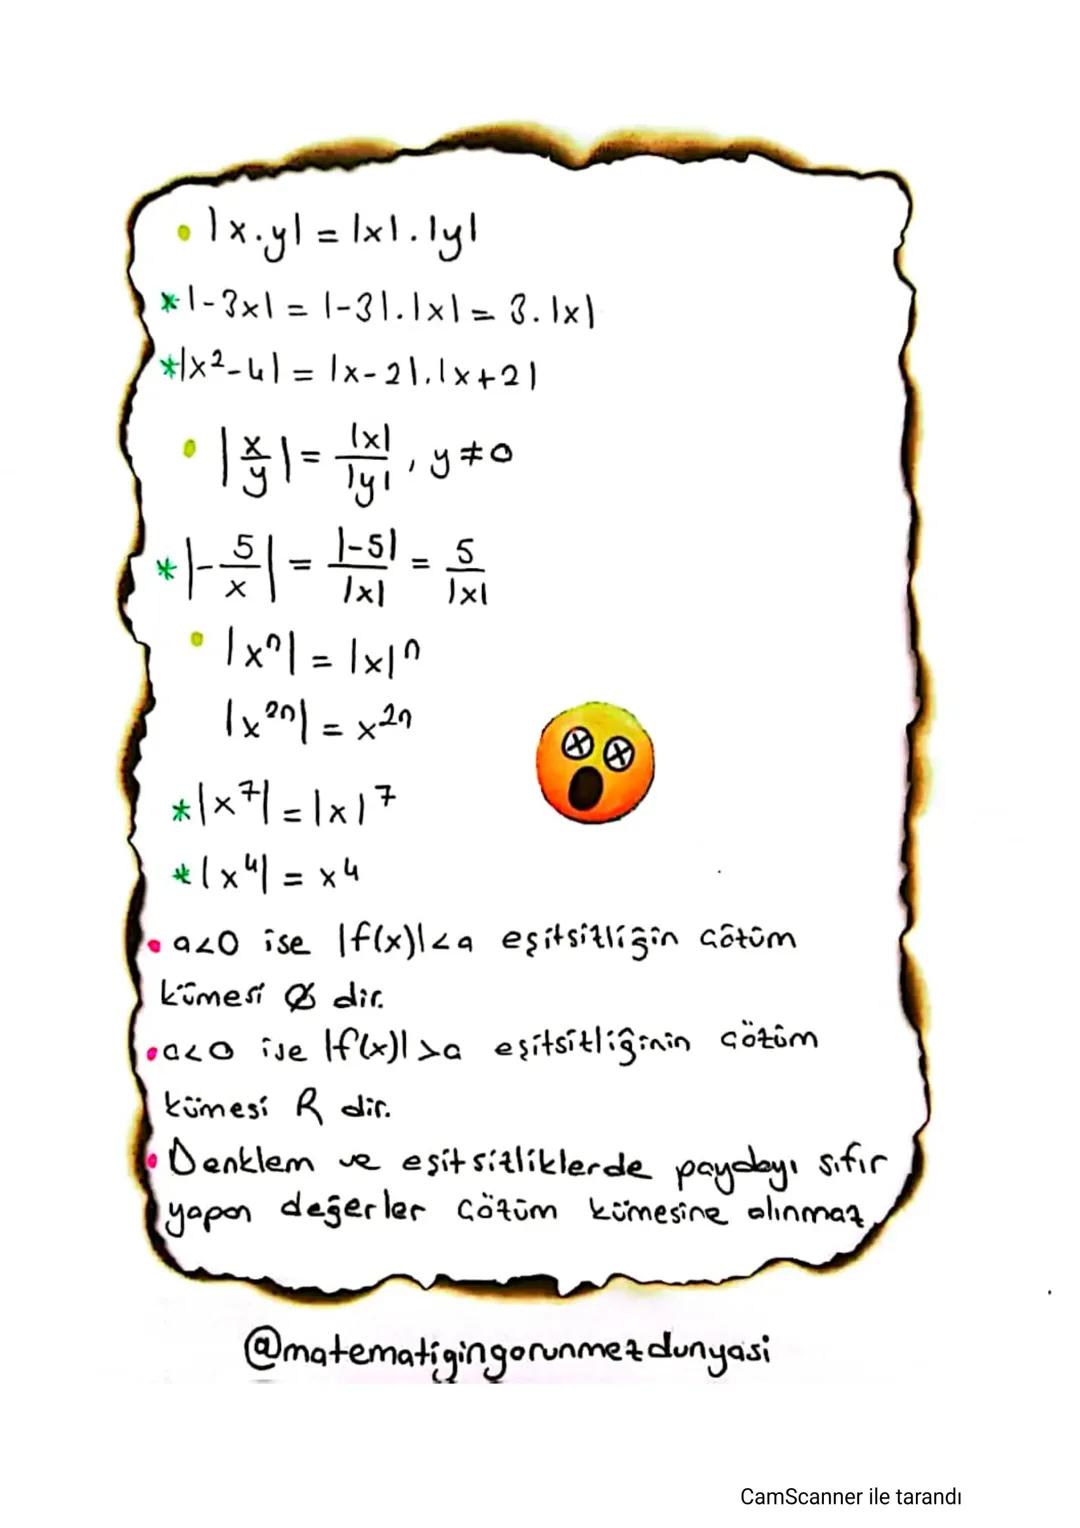 • |x.y| = |x|.|y|
*|-3x| = |-3|.|x| = 3.|x|
*|x²-4| = |x-2|.|x+2|
• |x/y| = |x|/|y| , y≠0
*|-5/x| = |-5|/|x| = 5/|x|
• |xⁿ| = |x|ⁿ
|x²ⁿ| = x²ⁿ
*|x⁷| = |x|⁷
*|x⁴| = x⁴
• a<0 ise |f(x)|<a eşitsizliğin çözüm
kümesi Ø dir.
• a<0 ise |f(x)|>a eşitsizliğinin çözüm
kümesi R dir.
• Denklem ve eşitsizliklerde paydayı sıfır
yapan değerler çözüm kümesine alınmaz
@matematigingorunmezdunyasi
CamScanner ile tarandı